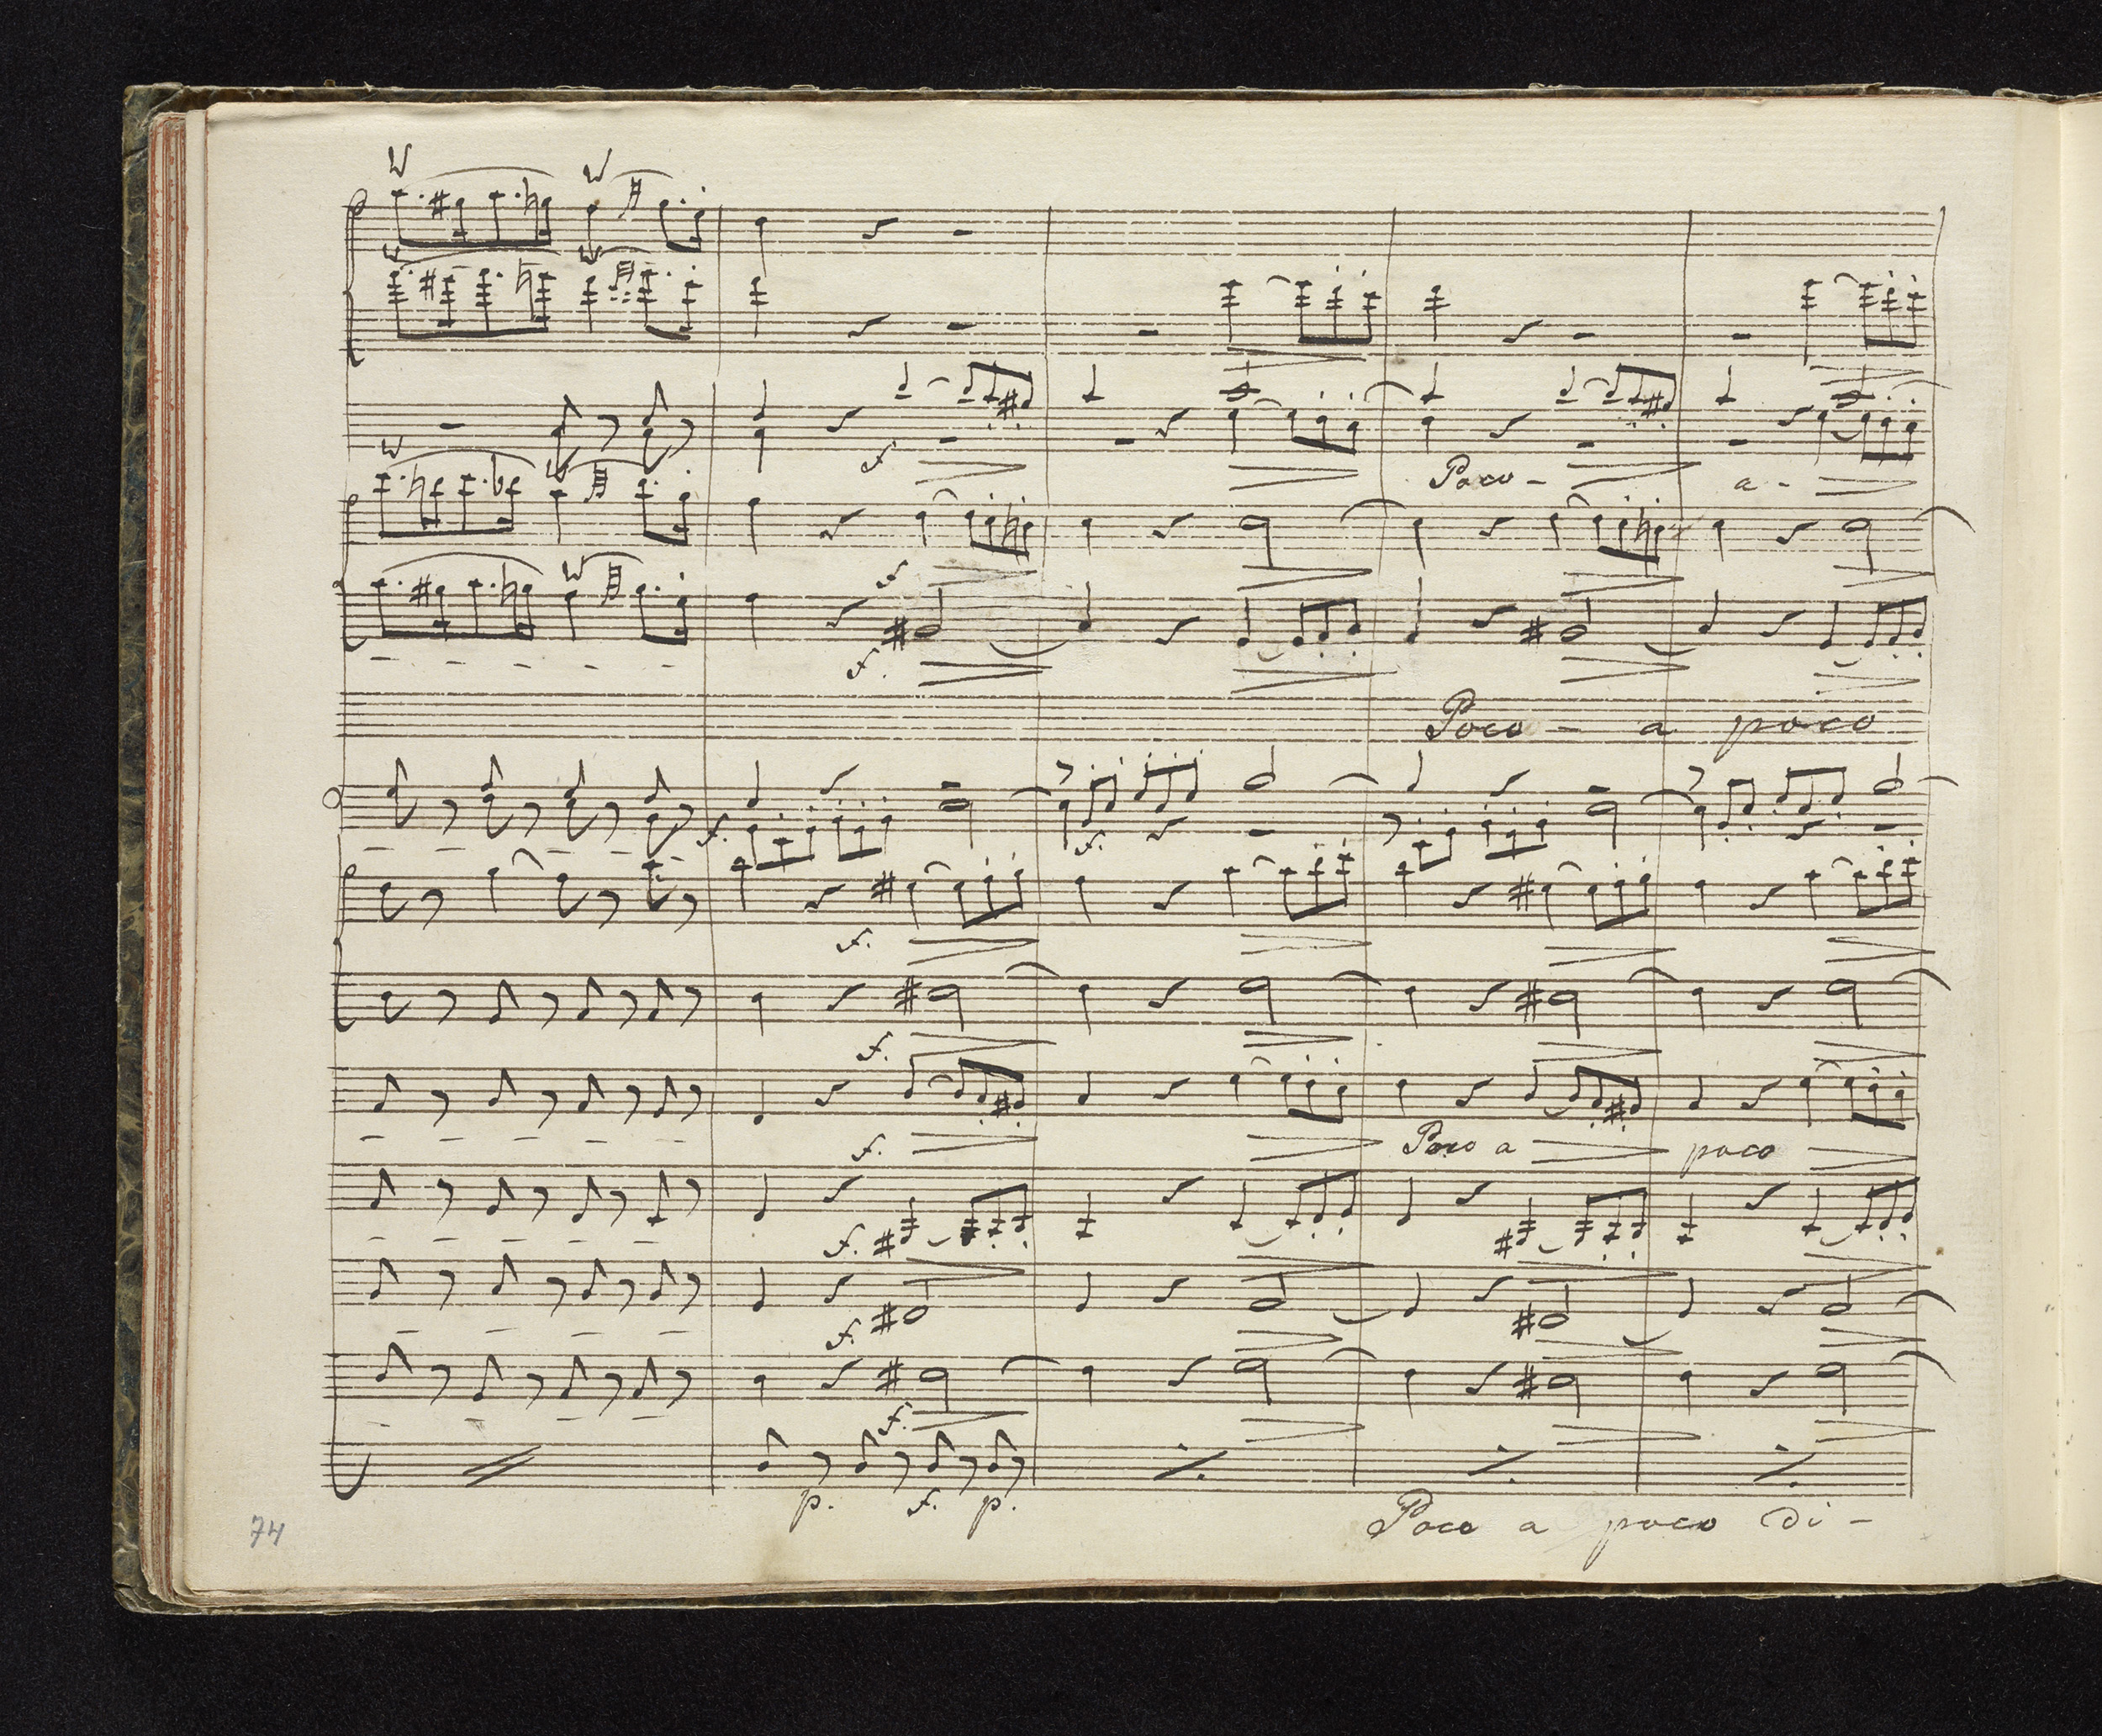 f.
Poco - a -
f.
f.
Poco - a poco
f. f.
f.
f.
Poco a poco
f.
f.
f.
f.
p. f. p.
Poco a poco di -
74